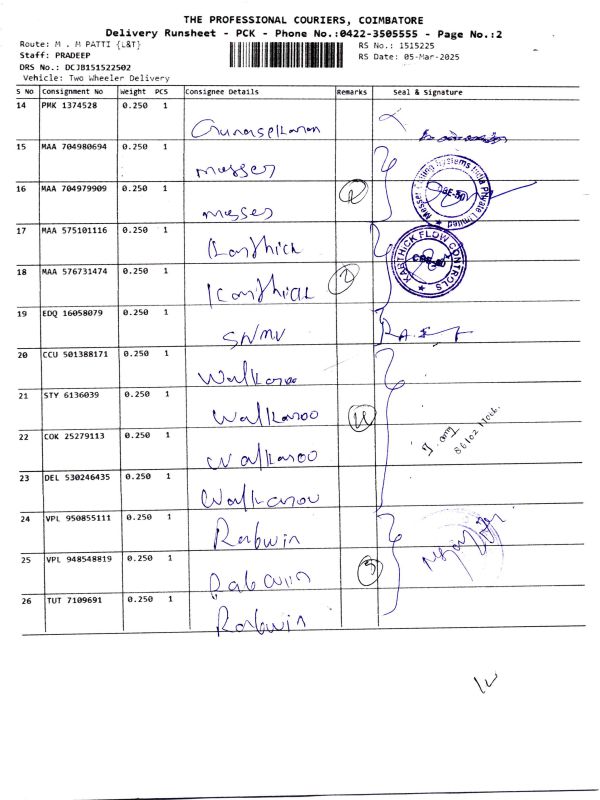 THE PROFESSIONAL COURIERS, COIMBATORE
Delivery Runsheet - PCK - Phone No.:0422-3505555 - Page No.:2
Route: M . M PATTI {L&T}
RS No.: 1515225
Staff: PRADEEP
RS Date: 05-Mar-2025
DRS No.: DCJB151522502
Vehicle: Two Wheeler Delivery
S No Consignment No Weight PCS Consignee Details Remarks Seal & Signature
14 PMK 1374528 0.250 1
Gunasekaran
15 MAA 704980694 0.250 1
messer
16 MAA 704979909 0.250 1
messer
2
Messer Cutting Systems India Private Limited
CBE-50
17 MAA 575101116 0.250 1
Karthick
18 MAA 576731474 0.250 1
Karthick
2
KARTHICK FLOW CONTROLS
19 EDQ 16058079 0.250 1
SNMV
20 CCU 501388171 0.250 1
Walkaroo
21 STY 6136039 0.250 1
Walkaroo
4
22 COK 25279113 0.250 1
Walkaroo
23 DEL 530246435 0.250 1
Walkaroo
24 VPL 950855111 0.250 1
Rabwin
25 VPL 948548819 0.250 1
Rabwin
3
26 TUT 7109691 0.250 1
Rabwin